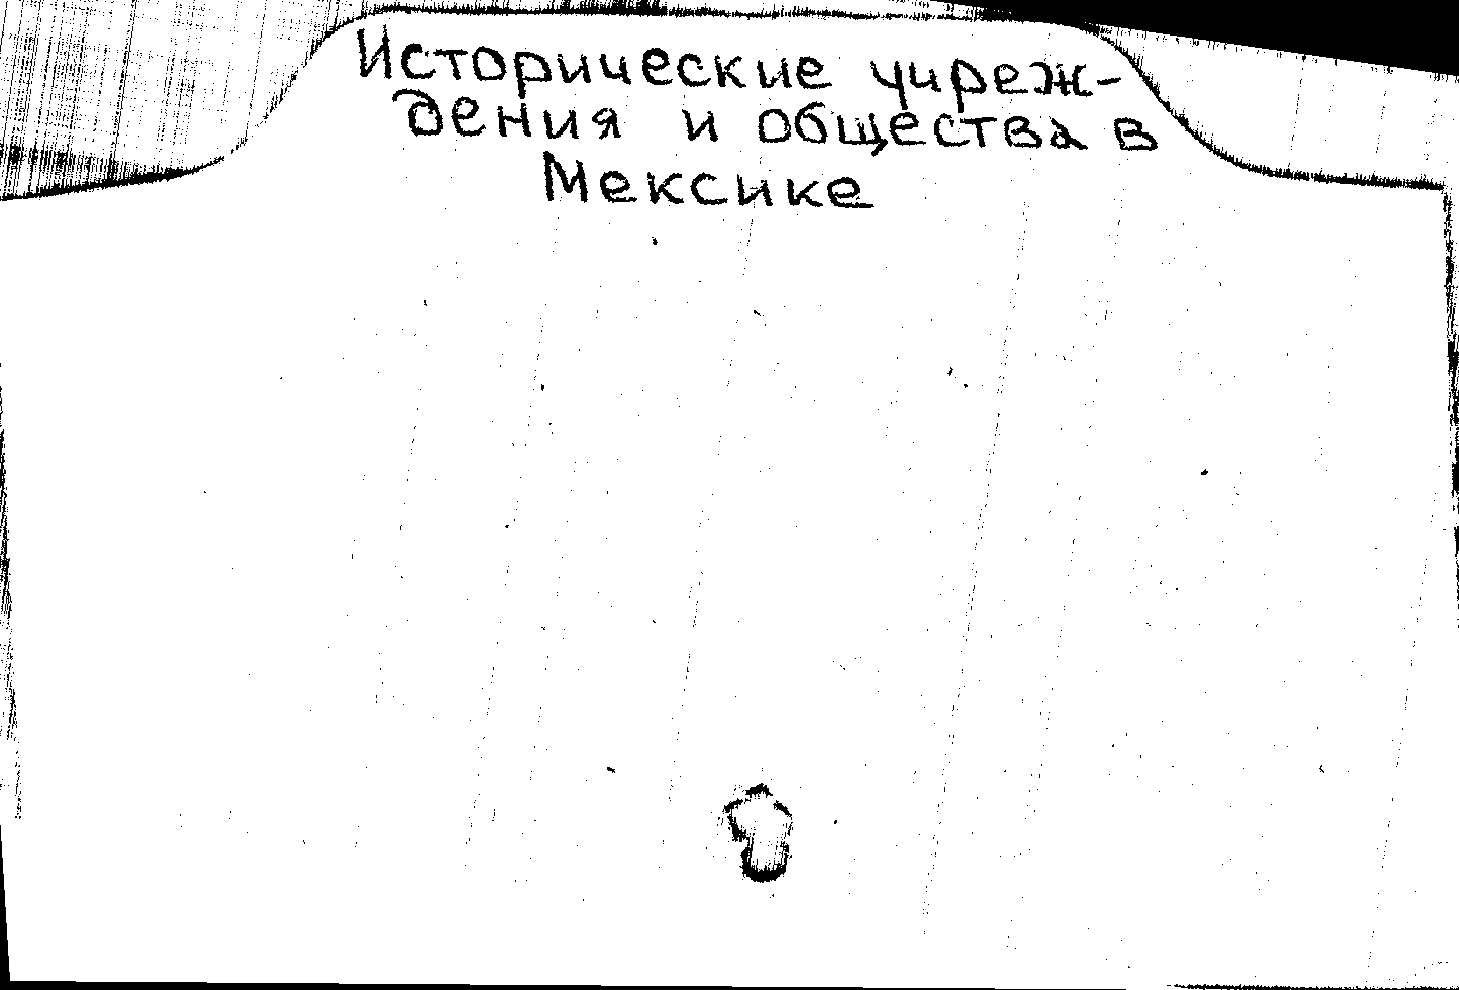 Исторические учреж-
дения и общества в
Мексике